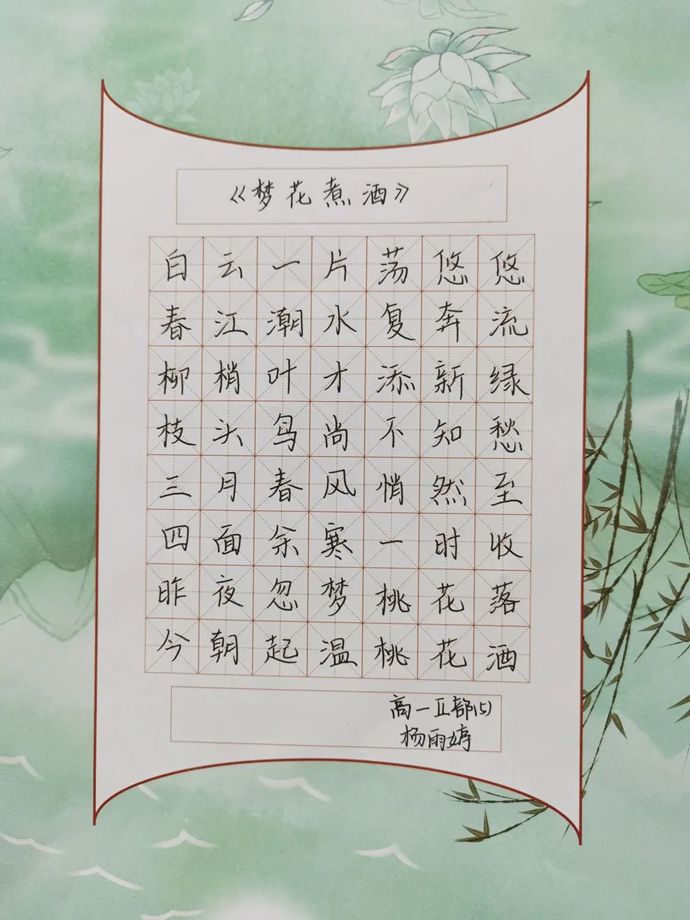 《梦花煮酒》
白云一片荡悠悠
春江潮水复奔流
柳梢叶才添新绿
枝头鸟尚不知愁
三月春风悄然至
四面余寒一时收
昨夜忽梦桃花落
今朝起温桃花酒
高一Ⅱ部(5)
杨雨婷